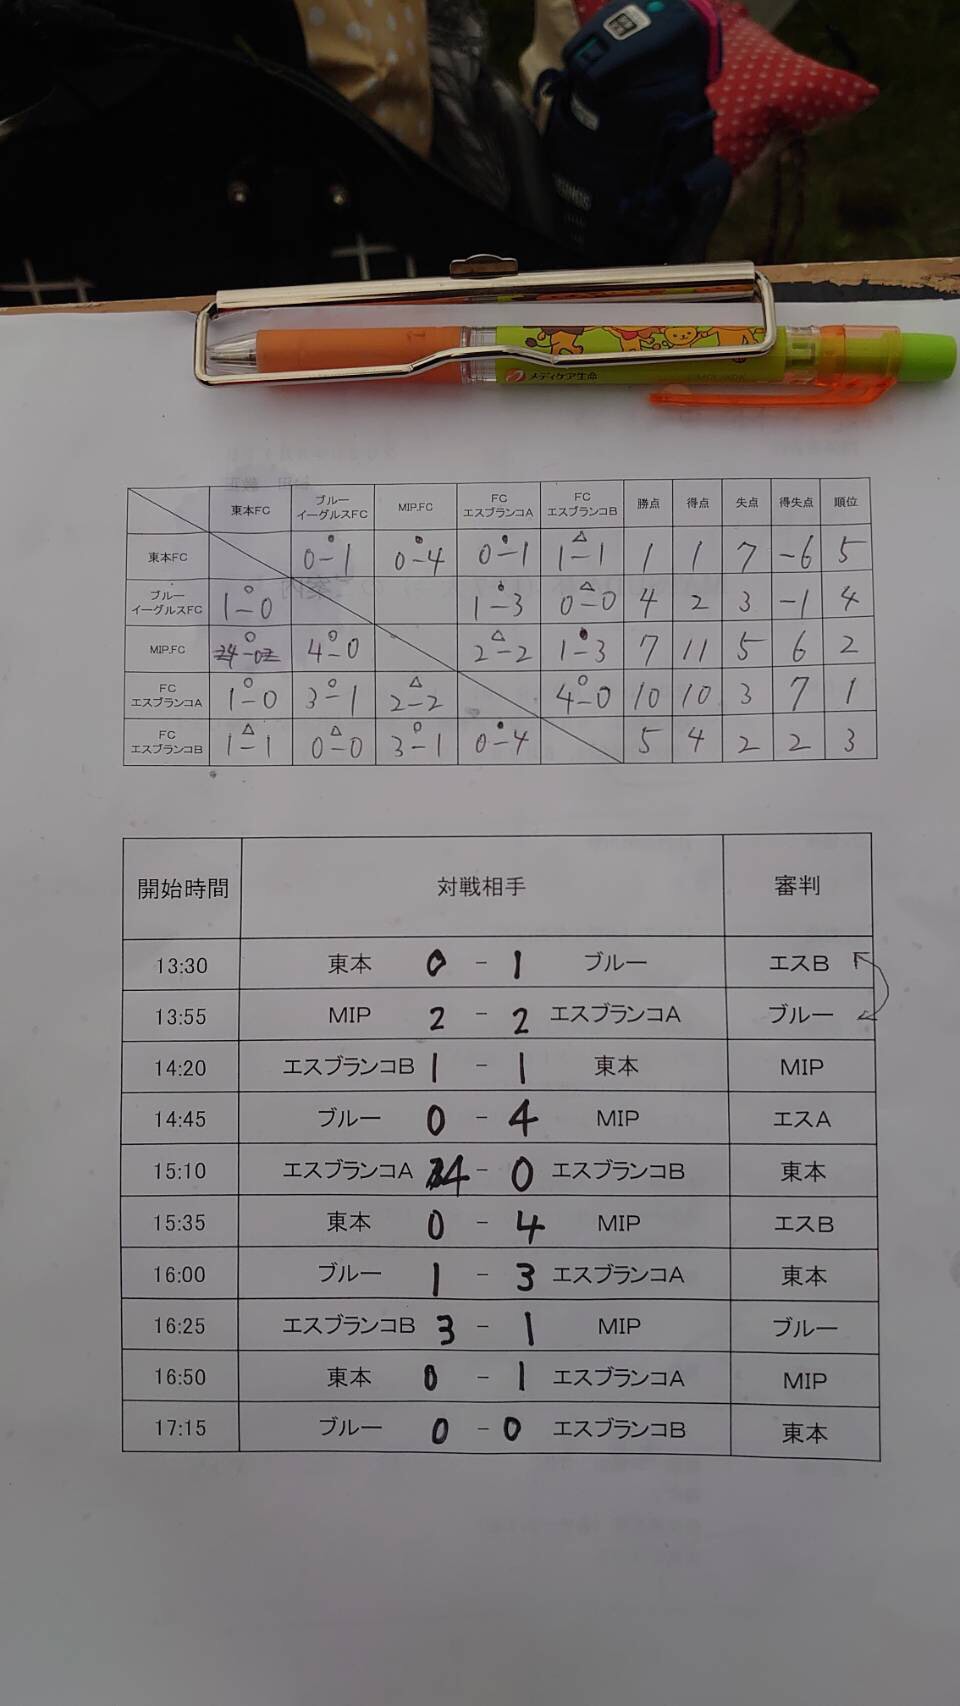 メディケア生命
東本FC ブルーイーグルスFC MIP.FC FCエスブランコA FCエスブランコB 勝点 得点 失点 得失点 順位
東本FC ●0-1 ●0-4 ●0-1 △1-1 1 1 7 -6 5
ブルーイーグルスFC ○1-0 ●1-3 △0-0 4 2 3 -1 4
MIP.FC ○4-0 ○4-0 △2-2 ●1-3 7 11 5 6 2
FCエスブランコA ○1-0 ○3-1 △2-2 ○4-0 10 10 3 7 1
FCエスブランコB △1-1 △0-0 ○3-1 ●0-4 5 4 2 2 3
開始時間 対戦相手 審判
13:30 東本 0 - 1 ブルー エスB
13:55 MIP 2 - 2 エスブランコA ブルー
14:20 エスブランコB 1 - 1 東本 MIP
14:45 ブルー 0 - 4 MIP エスA
15:10 エスブランコA 4 - 0 エスブランコB 東本
15:35 東本 0 - 4 MIP エスB
16:00 ブルー 1 - 3 エスブランコA 東本
16:25 エスブランコB 3 - 1 MIP ブルー
16:50 東本 0 - 1 エスブランコA MIP
17:15 ブルー 0 - 0 エスブランコB 東本